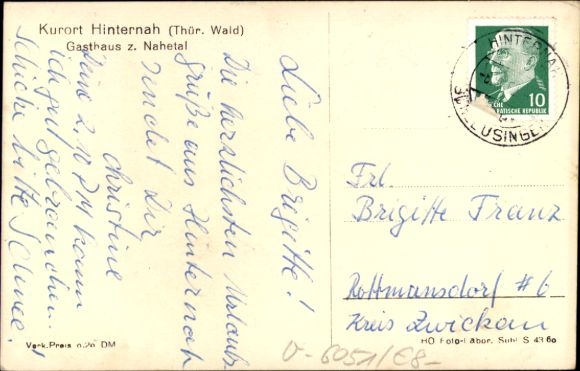 Kurort Hinternah (Thür. Wald)
Gasthaus z. Nahetal
Liebe Brigitte!
Die herzlichsten Urlaubs-
grüße aus Hinternah
sendet Dir
Christine
Deine 2,10 DM kann
ich gut gebrauchen.
Schicke bitte Schnee!"
HINTERNAH
SCHLEUSINGEN
10
DEUTSCHE
DEMOKRATISCHE REPUBLIK
Frl.
Brigitte Franz
Rottmansdorf # 6
Kreis Zwickau
Verk.-Preis 0,20 DM
HO Foto-Labor, Suhl S 43 60
0-6051/E8-